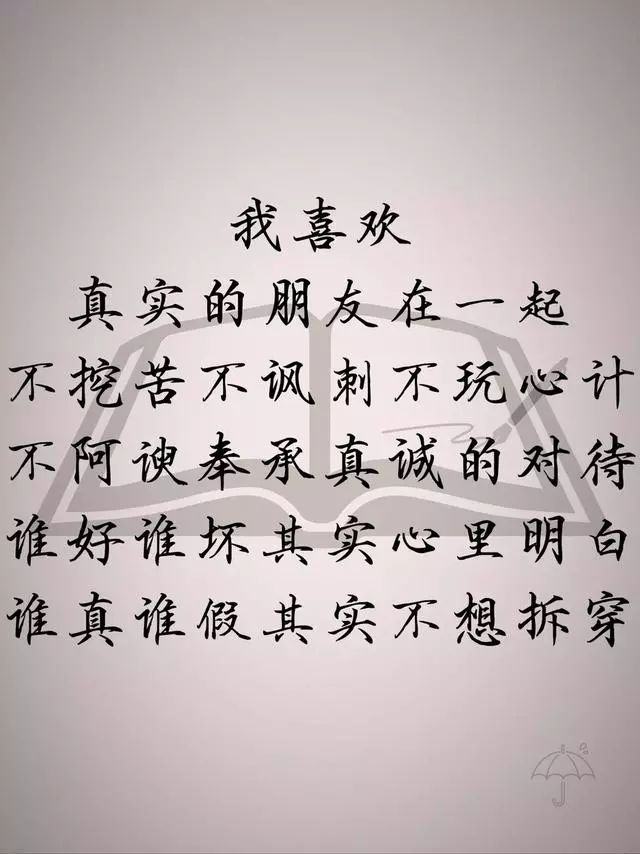 我喜欢
真实的朋友在一起
不挖苦不讽刺不玩心计
不阿谀奉承真诚的对待
谁好谁坏其实心里明白
谁真谁假其实不想拆穿